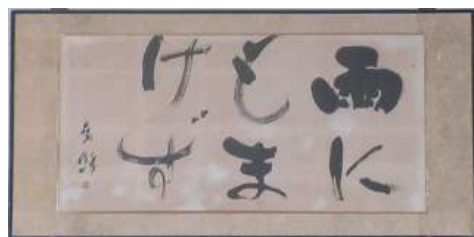 雨に
もま
けず